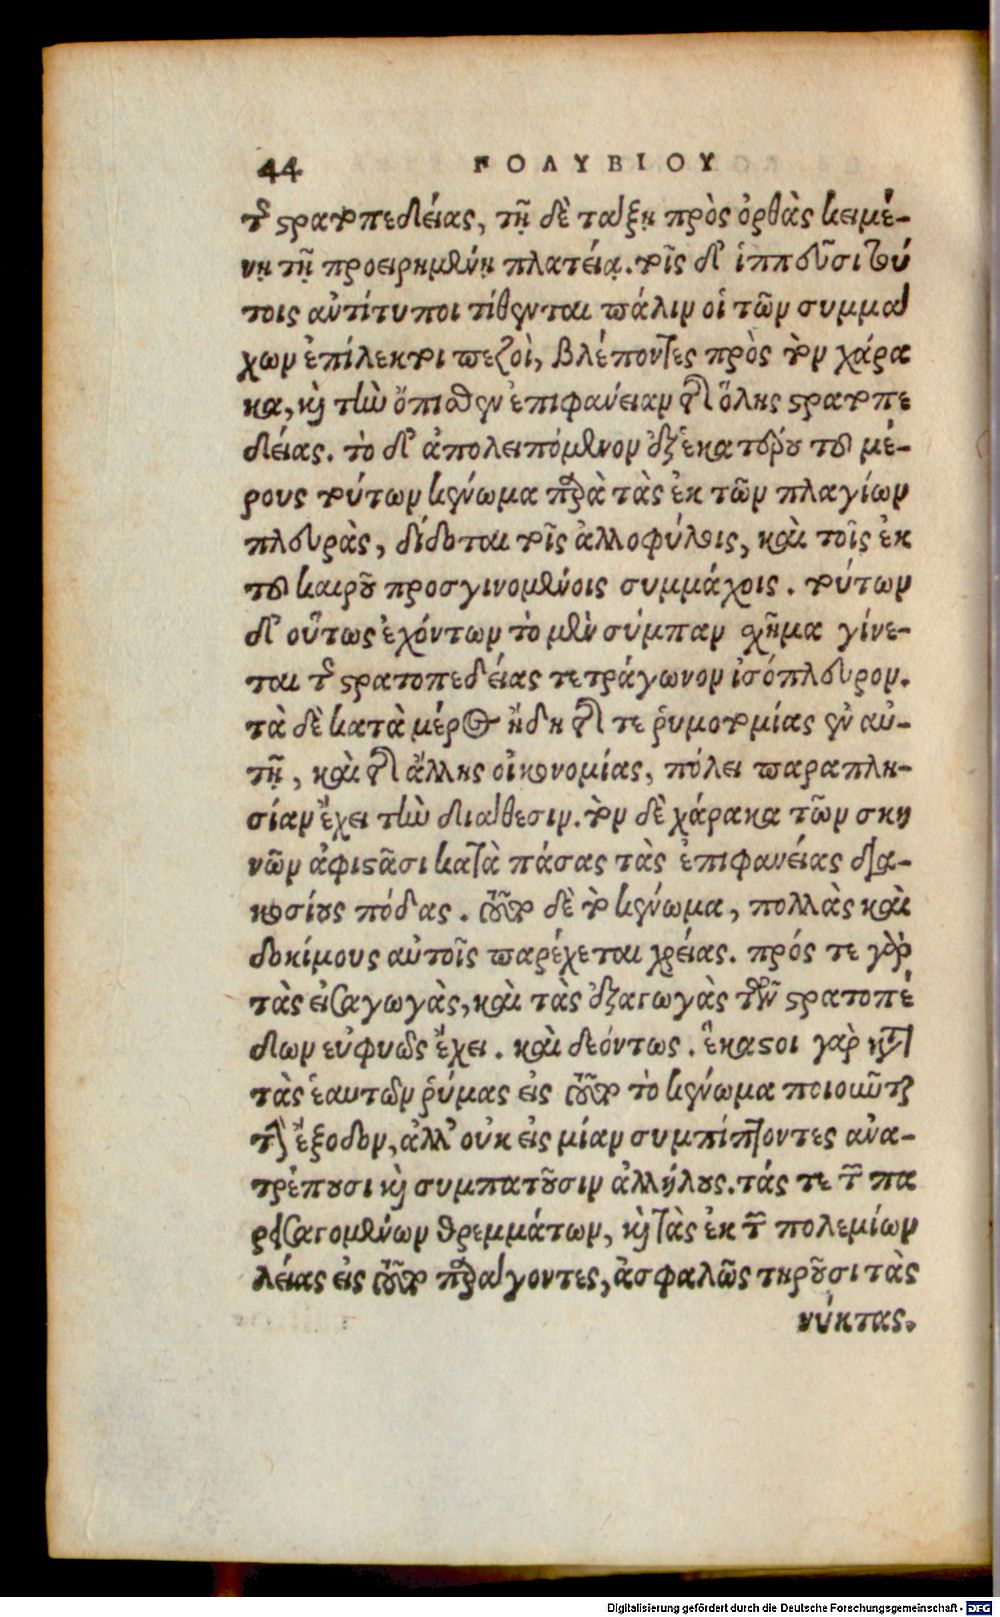 44 ΠΟΛΥΒΙΟΥ
τῆς στρατοπεδείας, τῇ δὲ τάξῃ πρὸς ὀρθὰς κειμέ-
νῃ τῇ προειρημένῃ πλατείᾳ. τοῖς δ' ἱππεῦσι τού
τοις ἀντίτυποι τίθενται πάλιν οἱ τῶν συμμά
χων ἐπίλεκτοι πεζοὶ, βλέποντες πρὸς τὸν χάρα
κα, καὶ τὴν ὄπισθεν ἐπιφάνειαν τῆς ὅλης στρατοπε
δείας. τὸ δ' ἀπολειπόμενον ἐξ ἑκατέρου τοῦ μέ-
ρους τούτων κένωμα παρὰ τὰς ἐκ τῶν πλαγίων
πλευρὰς, δίδοται τοῖς ἀλλοφύλοις, καὶ τοῖς ἐκ
τοῦ καιροῦ προσγινομένοις συμμάχοις. τούτων
δ' οὕτως ἐχόντων τὸ μὲν σύμπαν σχῆμα γίνε-
ται τῆς στρατοπεδείας τετράγωνον ἰσόπλευρον.
τὰ δὲ κατὰ μέρος ἤδη τῆς τε ῥυμοτομίας ἐν αὐ-
τῇ, καὶ τῆς ἄλλης οἰκονομίας, πόλει παραπλη-
σίαν ἔχει τὴν διάθεσιν. τὸν δὲ χάρακα τῶν σκη
νῶν ἀφιστᾶσι κατὰ πάσας τὰς ἐπιφανείας δια-
κοσίους πόδας. τοῦτο δὲ τὸ κένωμα, πολλὰς καὶ
δοκίμους αὐτοῖς παρέχεται χρείας. πρός τε γὰρ
τὰς εἰσαγωγὰς, καὶ τὰς ἐξαγωγὰς τῶν στρατοπέ
δων εὐφυῶς ἔχει. καὶ δεόντως. ἕκαστοι γὰρ κατὰ
τὰς ἑαυτῶν ῥύμας εἰς τοῦτο τὸ κένωμα ποιοῦνται
τὴν ἔξοδον, ἀλλ' οὐκ εἰς μίαν συμπίπτοντες ἀνα-
τρέπουσι καὶ συμπατοῦσιν ἀλλήλους. τάς τε τῶν πα
ρεισαγομένων θρεμμάτων, καὶ τὰς ἐκ τῶν πολεμίων
λείας εἰς τοῦτο παράγοντες, ἀσφαλῶς τηροῦσι τὰς
νύκτας.
Digitalisierung gefördert durch die Deutsche Forschungsgemeinschaft - DFG